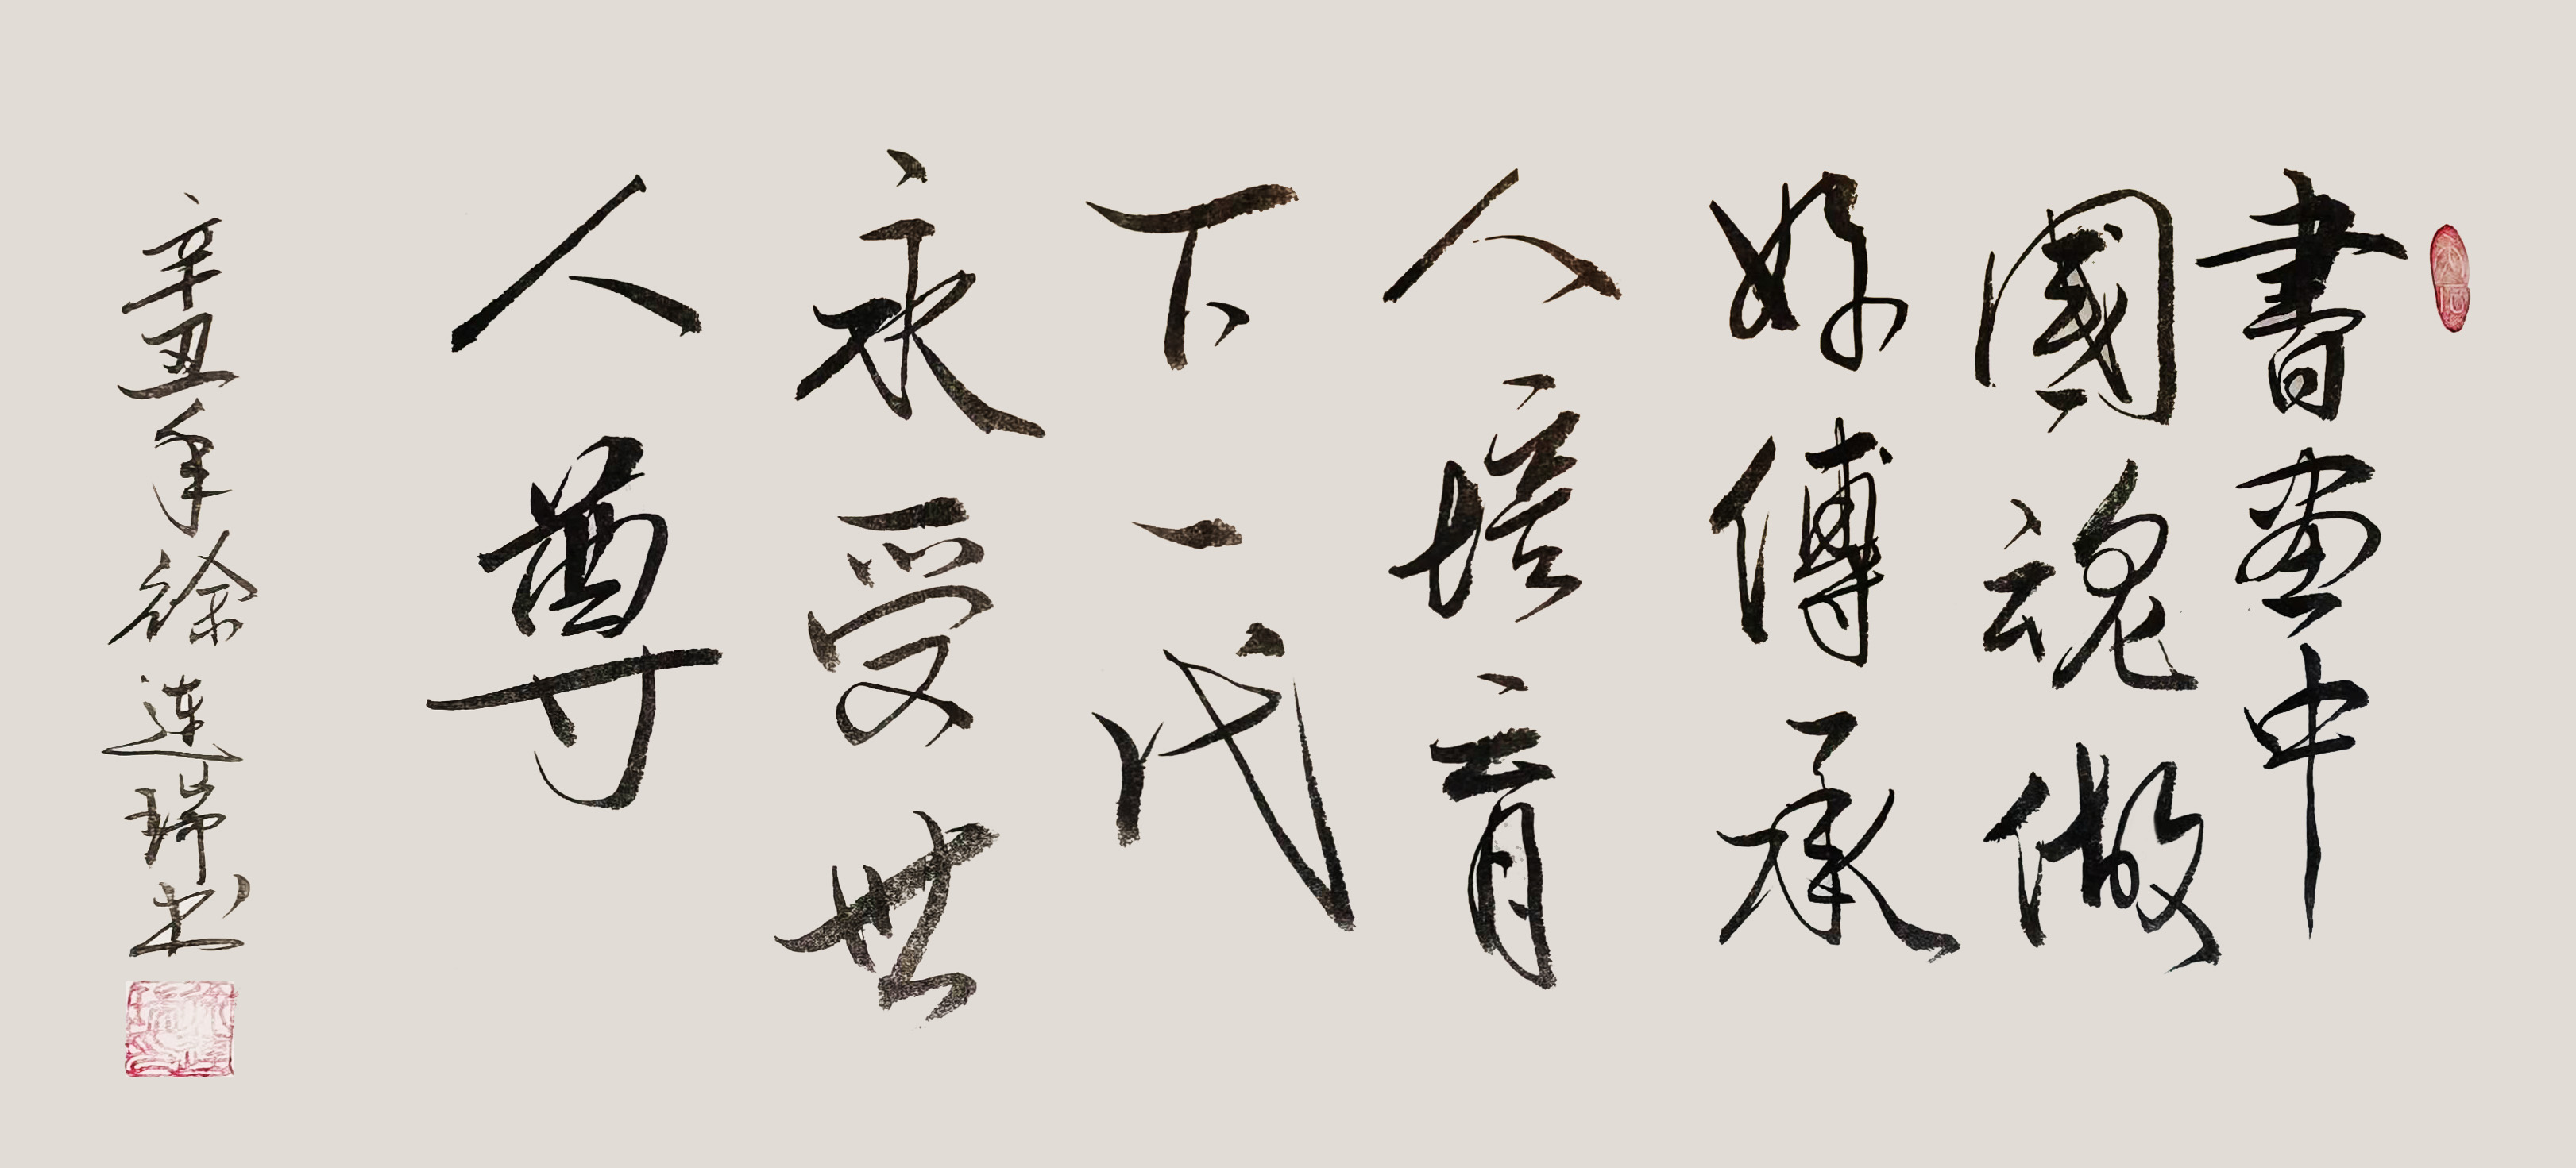 書畫中
國魂做
好傳承
人培育
下一代
永受世
人尊
辛丑年徐連瑞书